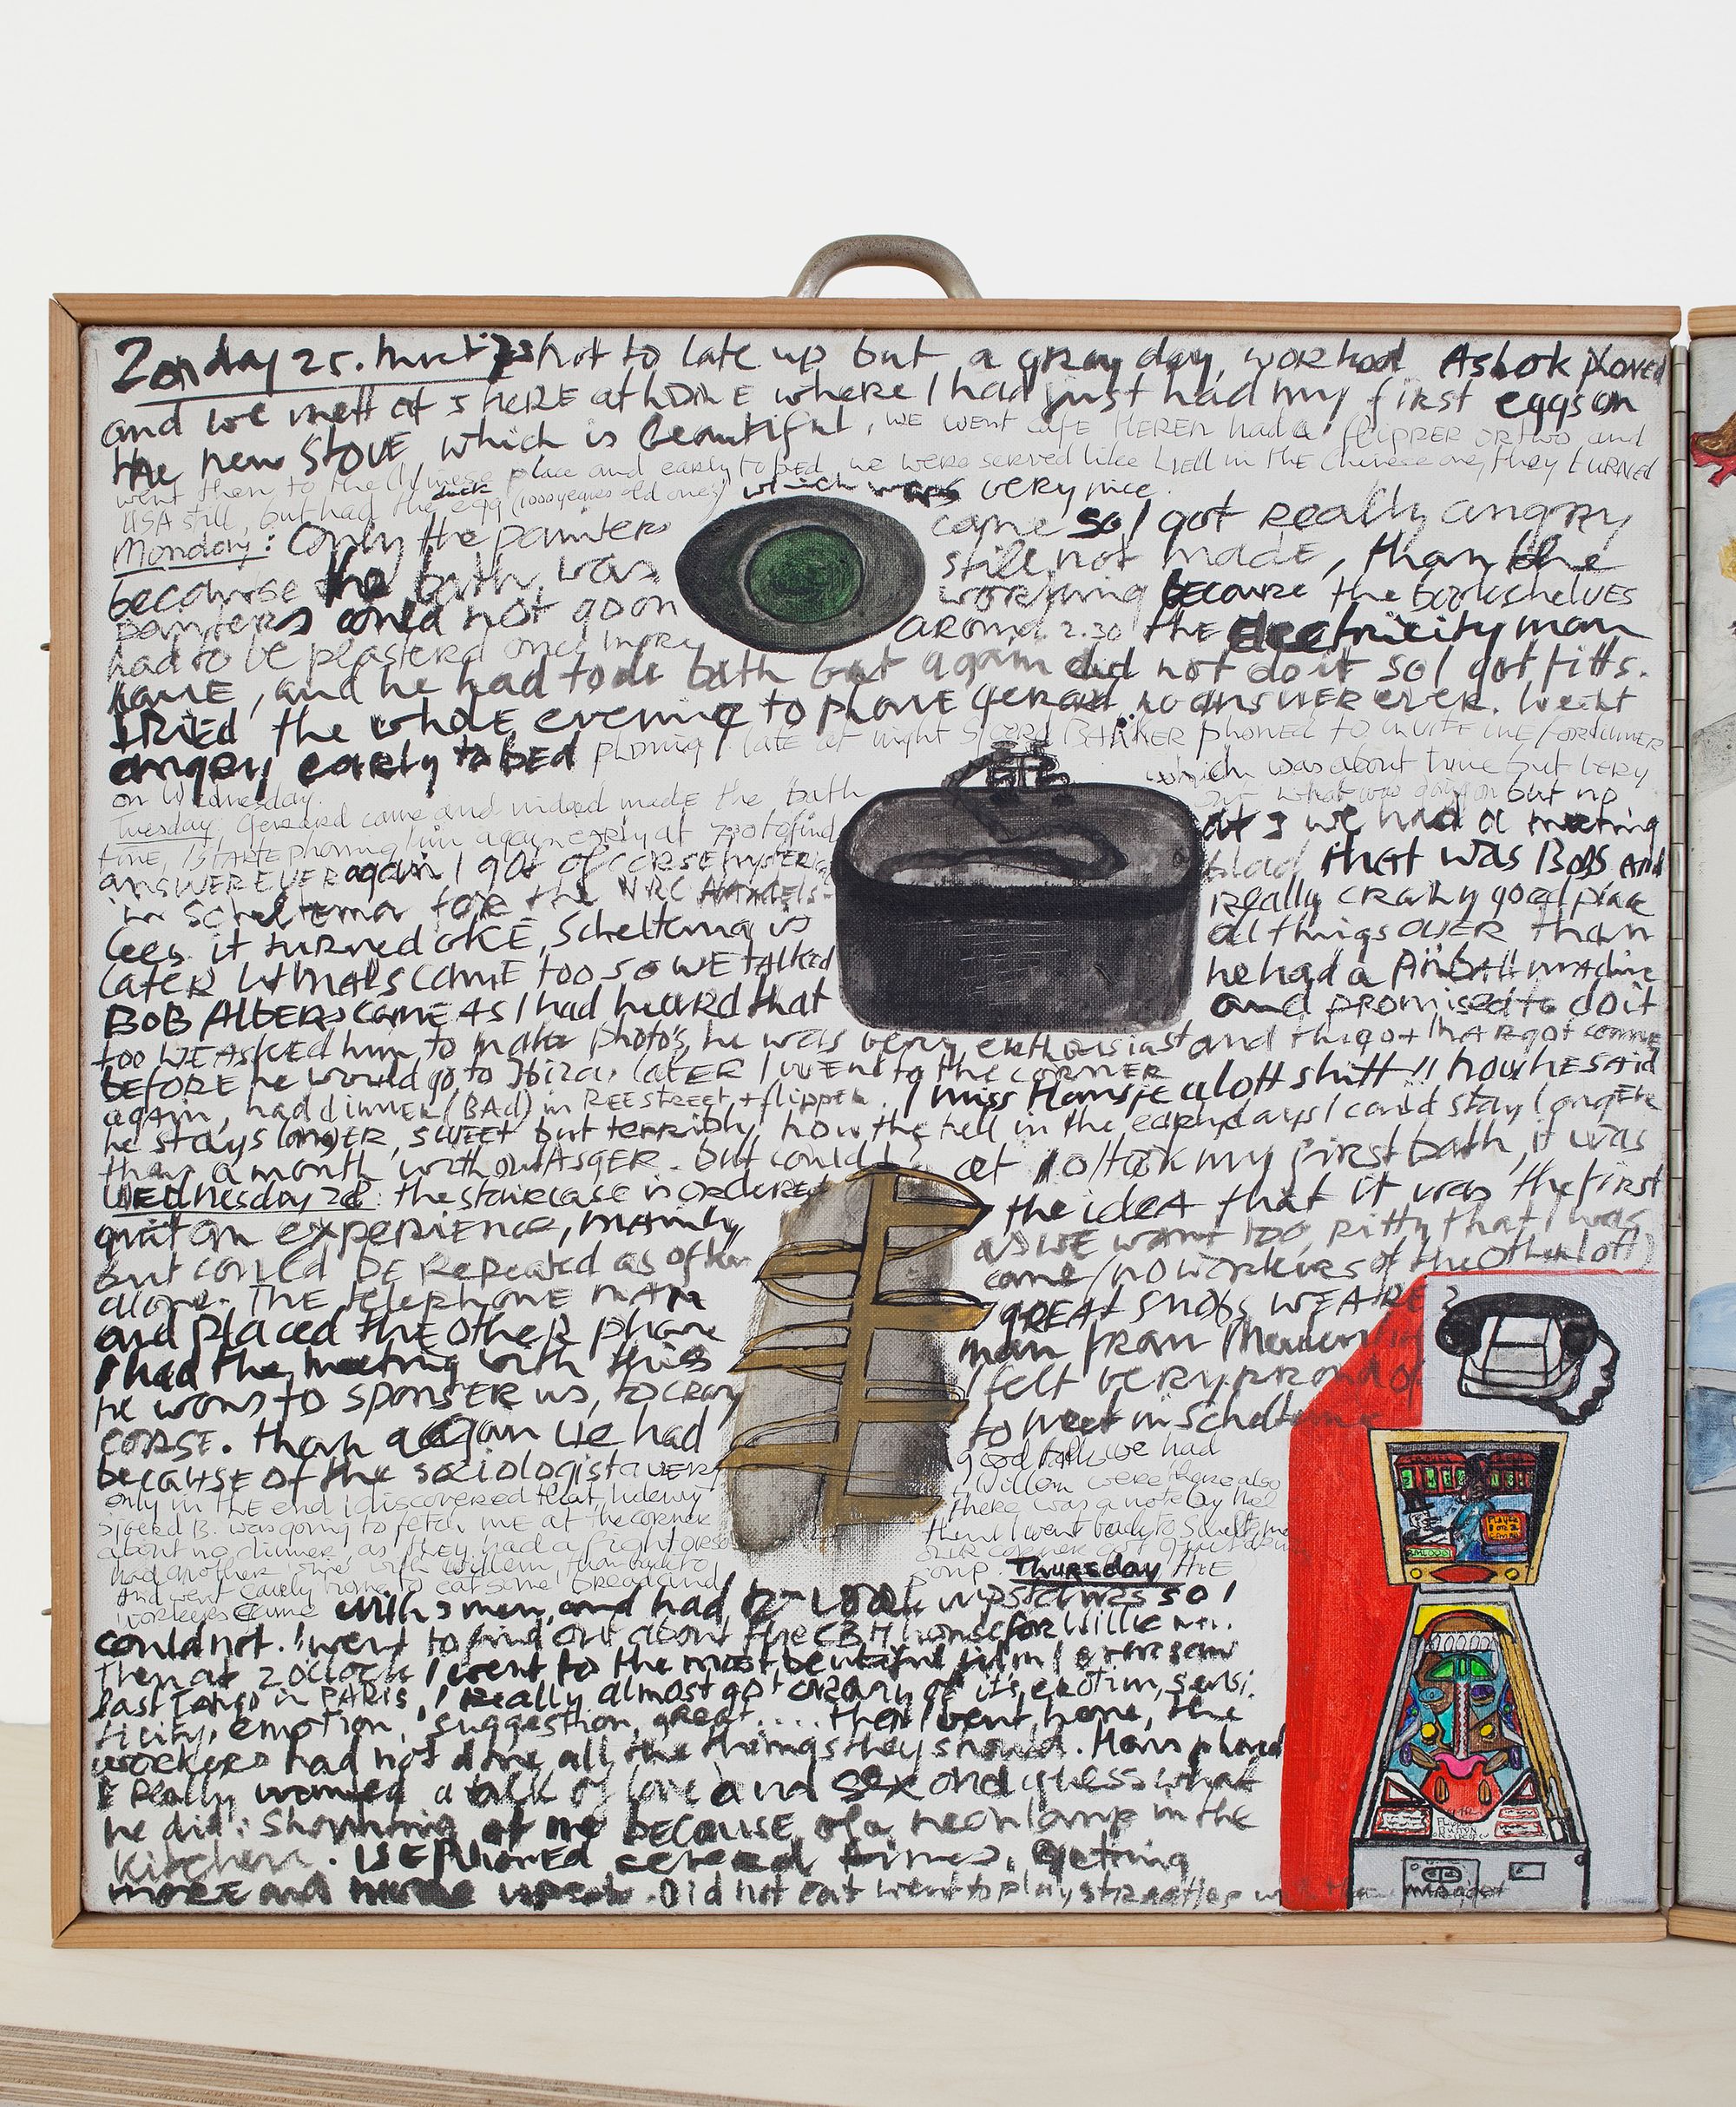 Zonday 25. not to late up but a gray day, worked Ashok phoned
and we mett at 5 here at home where I had just had my first eggs on
the new stove, which is beautiful, we went cafe Heren had a flipper or two and
went then to the Chinese place and early to bed, we were served like hell in the Chinese one, they turned
USA still, but had the duck egg (1000 years old one) which was very nice.
Monday: Only the painters came so I got really angry
because the bath was still not made, than the
painters could not go on working because the bookshelves
had to be plasterd once more around 2.30 the electricity man
came, and he had to do bath but again did not do it so I got fitts.
I tried the whole evening to phone Gerard no answer ever. Went
angry early to bed phoning late at night Sjoerd Bakker phoned to invite me for dinner
on Wednesday. which was about time but very
Tuesday: Gerard came and indeed made the bath but what was going on but no
fine, I starte phoning him again early at 7.30 to find at 3 we had a meeting
answer ever again I got of corse hysteric that was Bobs and
in Scheltema for the NRC Handels- really crazy good place
Cees it turned OKE, Scheltema is all things over than
later Withals came too so we talked he had a Pinball machine
Bob Albers came as I had heard that and promised to do it
too we asked him to make photo's, he was very enthousiast and Margot come
before he would go to Ibiza. later I went to the corner
again, had dinner (BAD) in Reestreet + flipper. I miss Hansje a lott shitt!! how he said
he stays longer, sweet but terribly how the hell in the early days I could stay longer
than a month without Asger. but could I? at 10 I took my first bath, it was
Wednesday 28: the staircase is ordered the idea that it was the first
quit an experience, mainly as we want too, pitty that I was
but could be repeated as often came (no workers of the other loft)
alone. The telephone man great snobs we are?
and placed the other phone man from
I had the meeting with this I felt very proud of
he wons to sponser us, to crazy to meet in Scheltema
corse. than again we had good talk we had
because of the sociologist Willem were there also
only in the end I discovered that there was a note by
Sjoerd B. was going to fetch me at the corner then I went back to Scheltema
about no dinner, as they had a fight our corner got
had another with Willem, than back to soup. Thursday the
and went early home to eat some bread and
workers came with 3 men, and had to work upstairs so I
could not. I went to find out about the CBH house for Willem.
Then at 2 o'clock I went to the most beutiful film I ever saw
Last Tango in Paris, I really almost got crazy of its, erotim, sensi.
ticity, emotion, suggestion, great.... then I went home, the
workers had not done all the things they should. Hans phoned
I really wanted a talk of love and sex and guess what
he did: Shouting at me because of a neonlamp in the
kitchen. We phoned several times, getting
more and more upset. Did not eat went to play streetflip with Margot